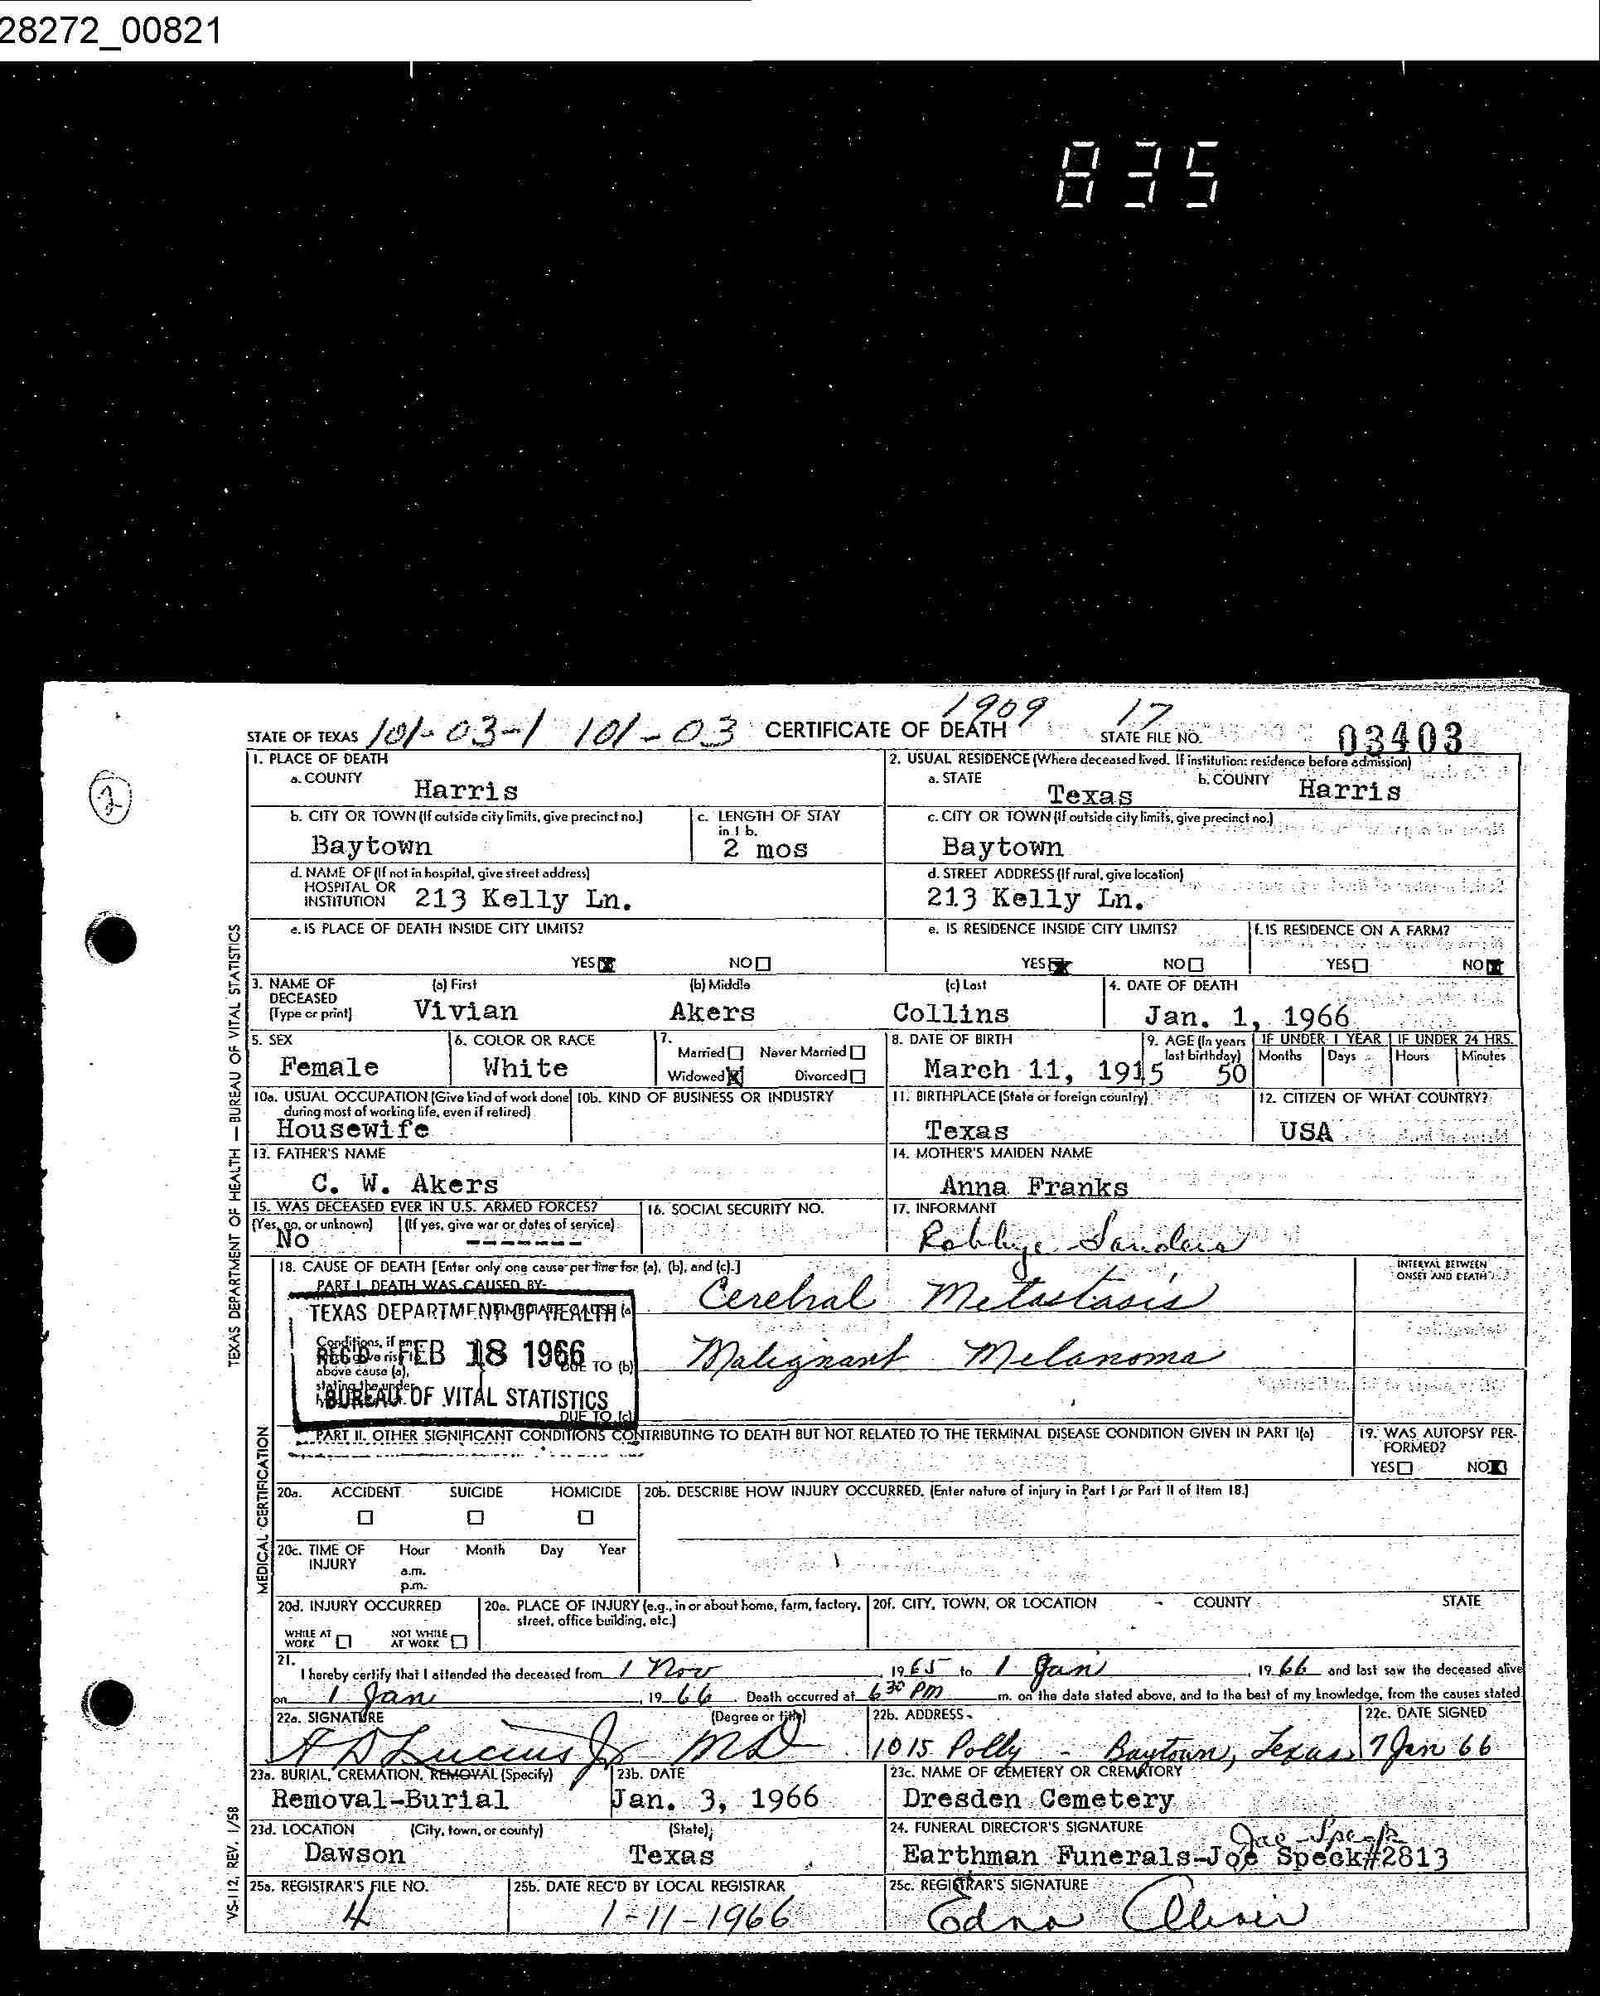 28272_00821
835
1909 17
STATE OF TEXAS 101-03-1 101-03 CERTIFICATE OF DEATH STATE FILE NO. 03403
2
1. PLACE OF DEATH
a. COUNTY Harris
2. USUAL RESIDENCE (Where deceased lived. If institution: residence before admission)
a. STATE Texas b. COUNTY Harris
b. CITY OR TOWN (If outside city limits, give precinct no.) Baytown
c. LENGTH OF STAY in 1 b. 2 mos
c. CITY OR TOWN (If outside city limits, give precinct no.) Baytown
d. NAME OF (If not in hospital, give street address) HOSPITAL OR INSTITUTION 213 Kelly Ln.
d. STREET ADDRESS (If rural, give location) 213 Kelly Ln.
e. IS PLACE OF DEATH INSIDE CITY LIMITS? YES NO
e. IS RESIDENCE INSIDE CITY LIMITS? YES NO
f. IS RESIDENCE ON A FARM? YES NO
3. NAME OF DECEASED (Type or print) (a) First Vivian (b) Middle Akers (c) Last Collins
4. DATE OF DEATH Jan. 1, 1966
5. SEX Female
6. COLOR OR RACE White
7. Married Never Married Widowed X Divorced
8. DATE OF BIRTH March 11, 1915
9. AGE (In years last birthday) 50
IF UNDER 1 YEAR Months Days
IF UNDER 24 HRS. Hours Minutes
10a. USUAL OCCUPATION (Give kind of work done during most of working life, even if retired) Housewife
10b. KIND OF BUSINESS OR INDUSTRY
11. BIRTHPLACE (State or foreign country) Texas
12. CITIZEN OF WHAT COUNTRY? USA
13. FATHER'S NAME C. W. Akers
14. MOTHER'S MAIDEN NAME Anna Franks
15. WAS DECEASED EVER IN U.S. ARMED FORCES? (Yes, no, or unknown) No (If yes, give war or dates of service) -------
16. SOCIAL SECURITY NO.
17. INFORMANT Robbye Sanders
18. CAUSE OF DEATH [Enter only one cause per line for (a), (b), and (c).]
PART I. DEATH WAS CAUSED BY:
INTERVAL BETWEEN ONSET AND DEATH
IMMEDIATE CAUSE (a) Cerebral Metastasis
DUE TO (b) Malignant Melanoma
DUE TO (c)
TEXAS DEPARTMENT OF HEALTH
REC'D FEB 18 1966
BUREAU OF VITAL STATISTICS
PART II. OTHER SIGNIFICANT CONDITIONS CONTRIBUTING TO DEATH BUT NOT RELATED TO THE TERMINAL DISEASE CONDITION GIVEN IN PART I(a)
19. WAS AUTOPSY PERFORMED? YES NO
20a. ACCIDENT SUICIDE HOMICIDE
20b. DESCRIBE HOW INJURY OCCURRED. (Enter nature of injury in Part I or Part II of Item 18.)
20c. TIME OF INJURY Hour Month Day Year
a.m.
p.m.
20d. INJURY OCCURRED WHILE AT WORK NOT WHILE AT WORK
20e. PLACE OF INJURY (e.g., in or about home, farm, factory, street, office building, etc.)
20f. CITY, TOWN, OR LOCATION COUNTY STATE
21. I hereby certify that I attended the deceased from 1 Nov, 1965 to 1 Jan, 1966 and last saw the deceased alive
on 1 Jan, 1966. Death occurred at 6 30 PM m. on the date stated above, and to the best of my knowledge, from the causes stated
22a. SIGNATURE (Degree or title) A D Lucius Jr MD
22b. ADDRESS 1015 Polly - Baytown, Texas
22c. DATE SIGNED 7 Jan 66
23a. BURIAL, CREMATION, REMOVAL (Specify) Removal-Burial
23b. DATE Jan. 3, 1966
23c. NAME OF CEMETERY OR CREMATORY Dresden Cemetery
23d. LOCATION (City, town, or county) Dawson (State) Texas
24. FUNERAL DIRECTOR'S SIGNATURE Joe Speck
Earthman Funerals-Joe Speck#2813
25a. REGISTRAR'S FILE NO. 4
25b. DATE REC'D BY LOCAL REGISTRAR 1-11-1966
25c. REGISTRAR'S SIGNATURE Edna Oliver
TEXAS DEPARTMENT OF HEALTH — BUREAU OF VITAL STATISTICS
MEDICAL CERTIFICATION
VS-112, REV. 1/58